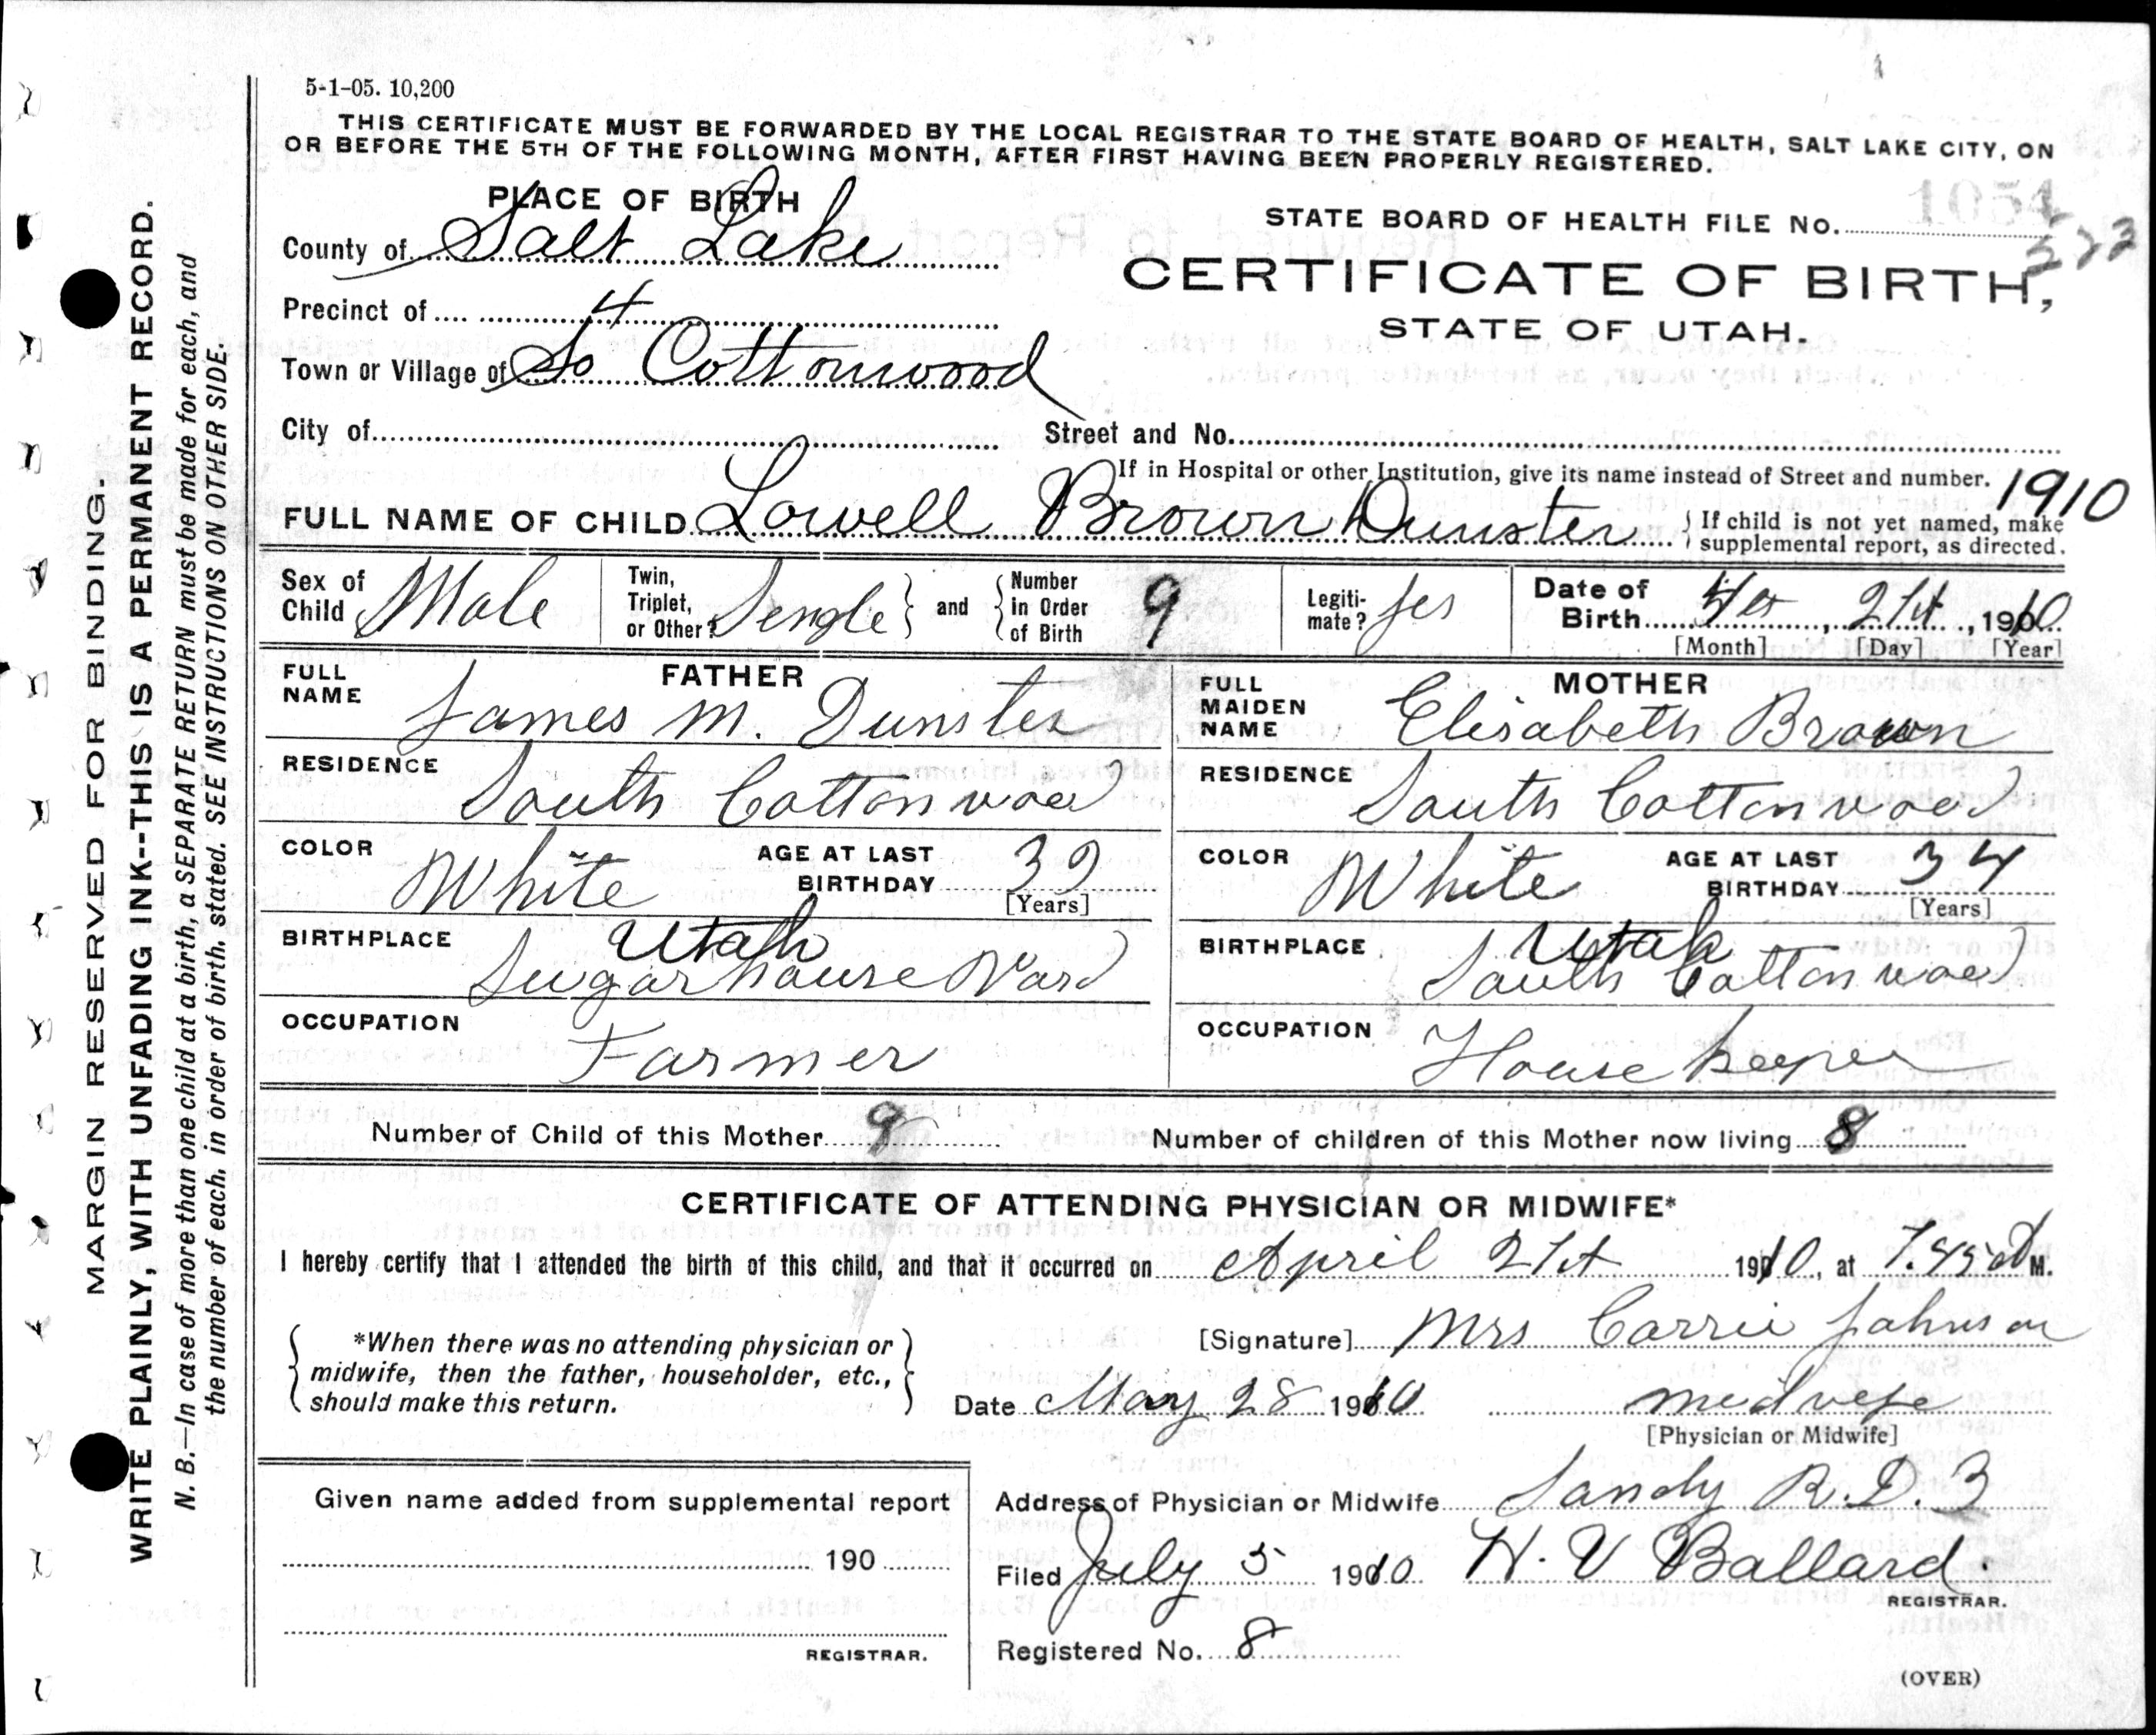 5-1-05. 10,200
THIS CERTIFICATE MUST BE FORWARDED BY THE LOCAL REGISTRAR TO THE STATE BOARD OF HEALTH, SALT LAKE CITY, ON
OR BEFORE THE 5TH OF THE FOLLOWING MONTH, AFTER FIRST HAVING BEEN PROPERLY REGISTERED.
PLACE OF BIRTH
County of Salt Lake
Precinct of 4
Town or Village of So Cottonwood
City of
STATE BOARD OF HEALTH FILE NO. 1054
CERTIFICATE OF BIRTH,
STATE OF UTAH.
Street and No.
If in Hospital or other Institution, give its name instead of Street and number.
1910
FULL NAME OF CHILD Lowell Brown Dunster
If child is not yet named, make
supplemental report, as directed.
Sex of
Child Male
Twin,
Triplet,
or Other? Sengle
and
Number
in Order
of Birth 9
Legiti-
mate? yes
Date of
Birth 21st, 1910
[Month] [Day] [Year]
FATHER
FULL
NAME James M. Dunster
RESIDENCE South Cottonwood
COLOR White
AGE AT LAST
BIRTHDAY 39
[Years]
BIRTHPLACE Utah
Sugar house Ward
OCCUPATION Farmer
MOTHER
FULL
MAIDEN
NAME Elisabeth Brown
RESIDENCE South Cottonwood
COLOR White
AGE AT LAST
BIRTHDAY 34
[Years]
BIRTHPLACE Utah
South Cottonwood
OCCUPATION House keeper
Number of Child of this Mother 9
Number of children of this Mother now living 8
CERTIFICATE OF ATTENDING PHYSICIAN OR MIDWIFE*
I hereby certify that I attended the birth of this child, and that it occurred on April 21st 1910, at 7.45 a M.
*When there was no attending physician or
midwife, then the father, householder, etc.,
should make this return.
[Signature] Mrs Carrie Johnson
Date May 28 1910
medwife
[Physician or Midwife]
Given name added from supplemental report
190
REGISTRAR.
Address of Physician or Midwife Sandy R.D. 3
Filed July 5 1910 H. V Ballard.
REGISTRAR.
Registered No. 8
(OVER)
MARGIN RESERVED FOR BINDING.
WRITE PLAINLY, WITH UNFADING INK--THIS IS A PERMANENT RECORD.
N. B.—In case of more than one child at a birth, a SEPARATE RETURN must be made for each, and
the number of each, in order of birth, stated. SEE INSTRUCTIONS ON OTHER SIDE.